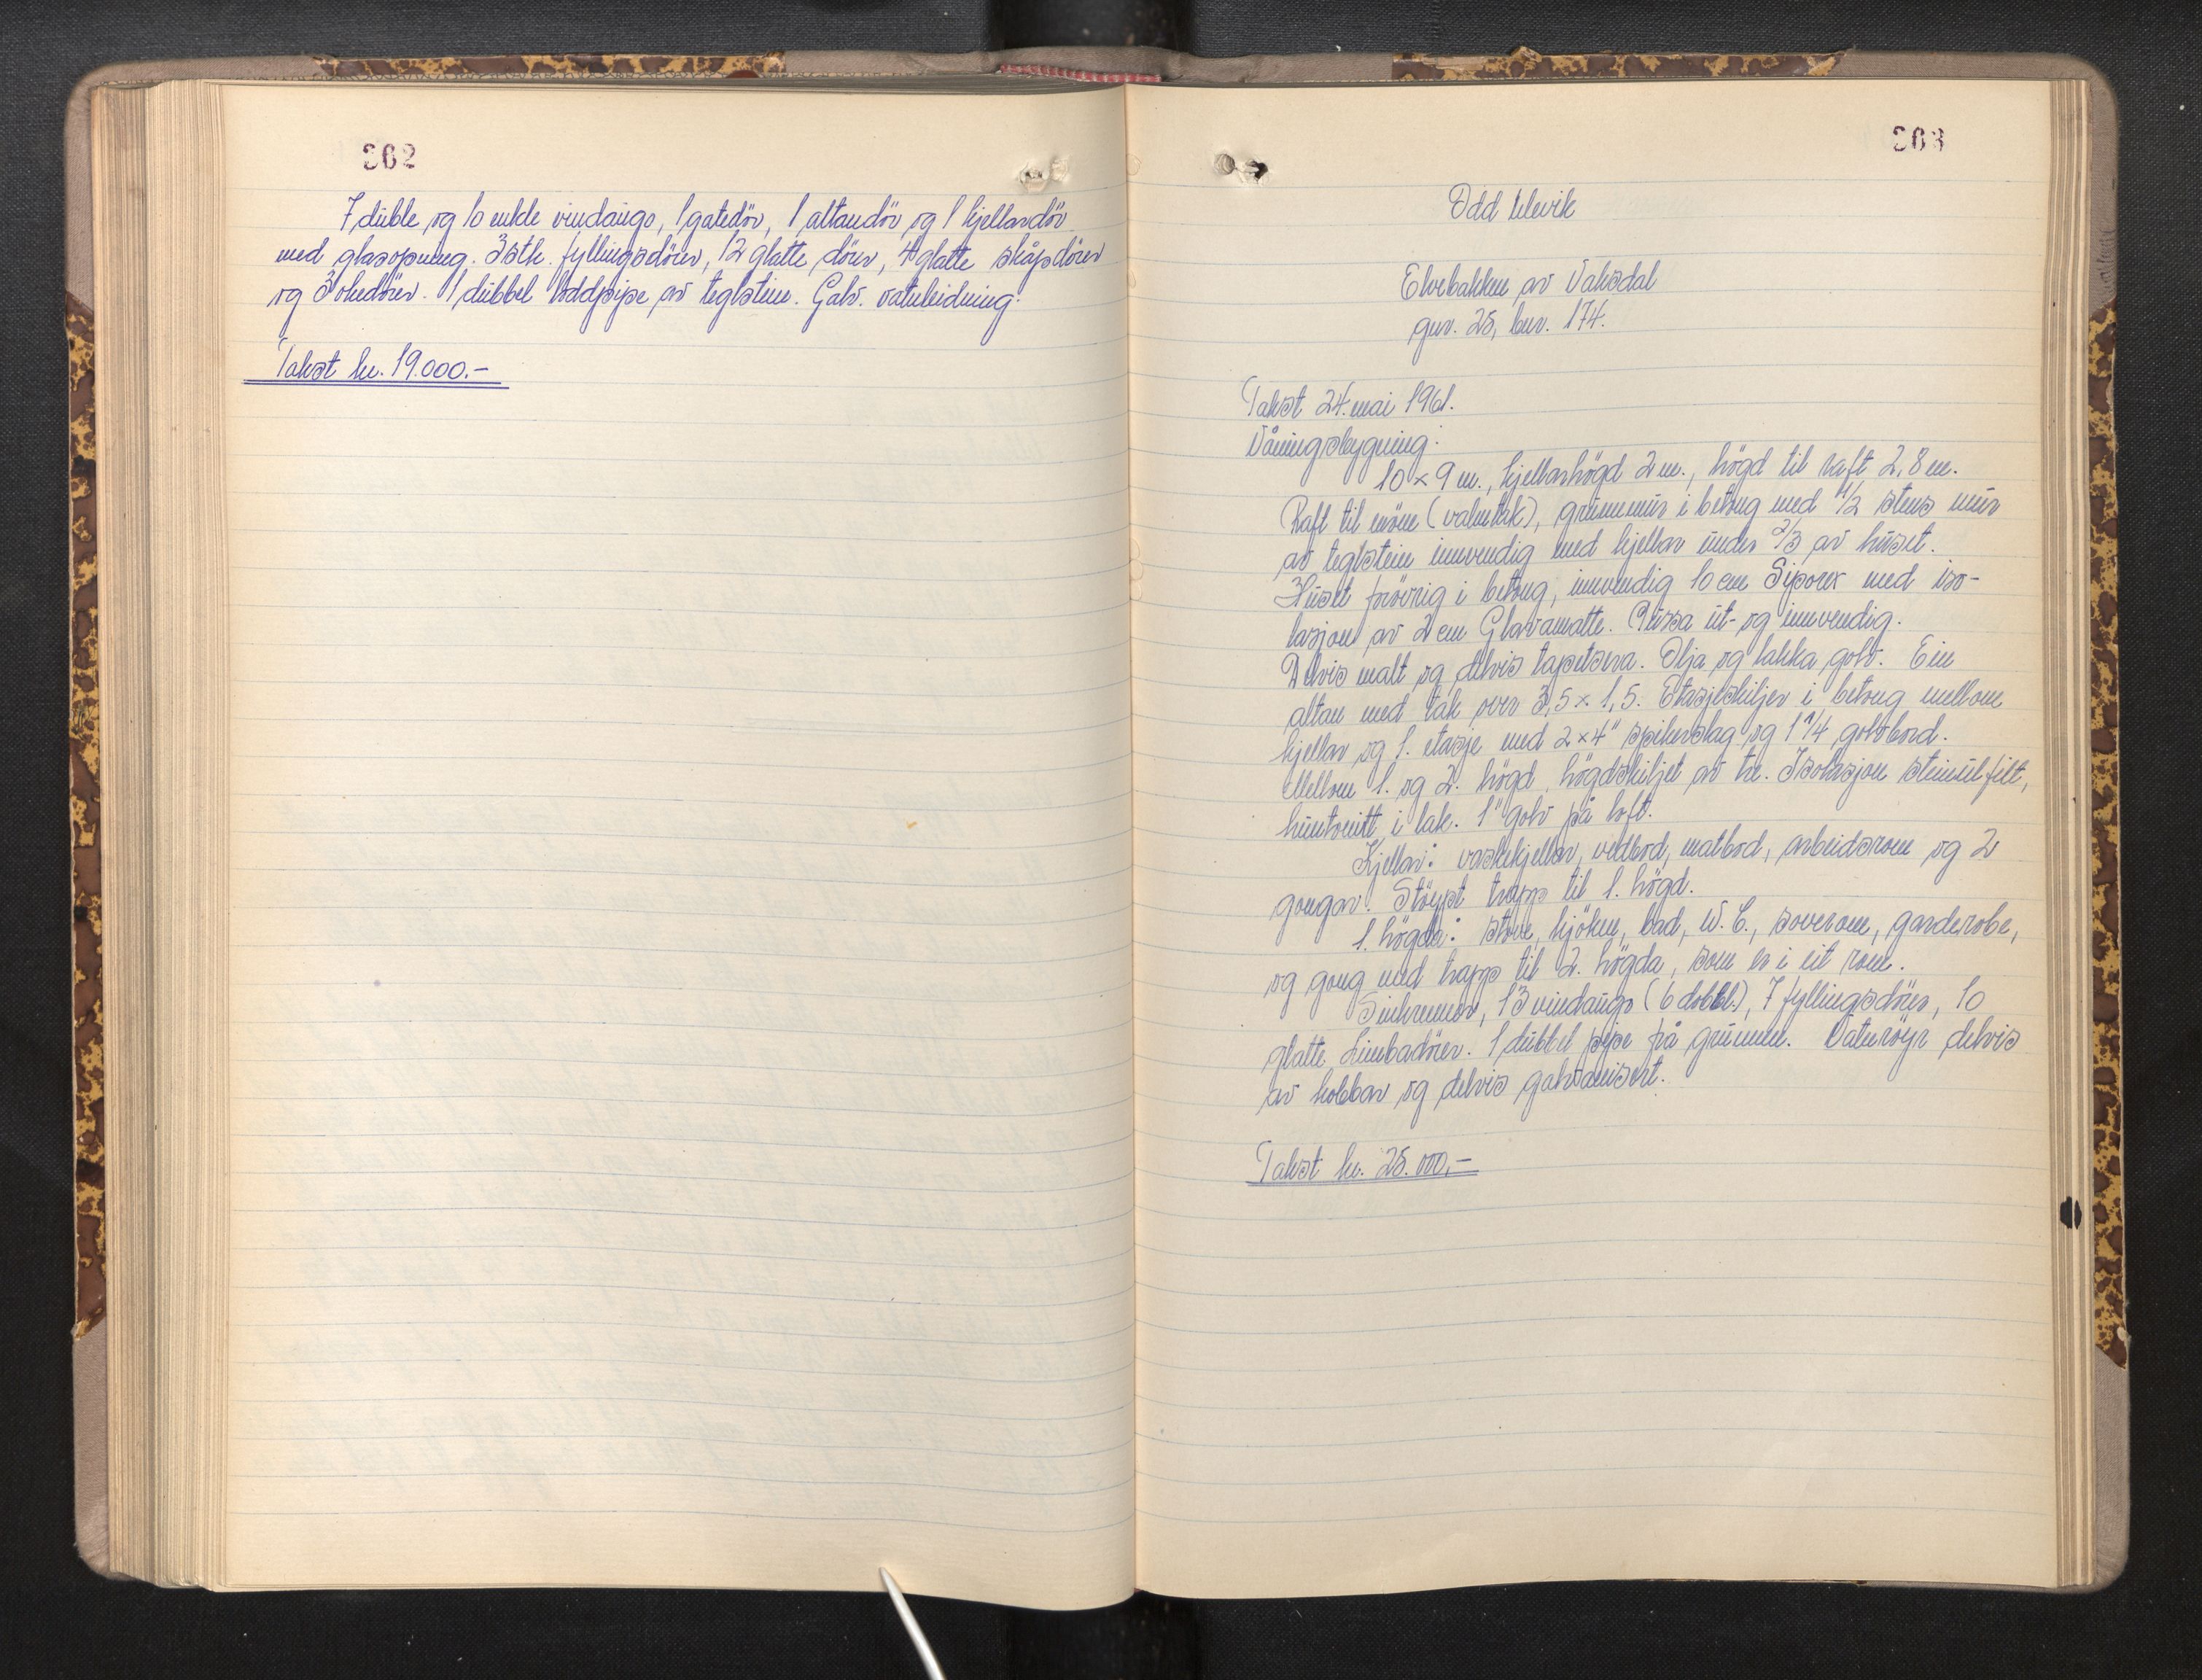 362
7 duble og 10 enkle vindaugo, 1 gatedör, 1 altandör og 1 kjellardör
med glasopning. 3 stk. fyllingsdörer, 12 glatte dörer, 4 glatte skåpdörer
og 3 okedörer. 1 dubbel loddpipe av teglstein. Galv. vatnleidning.
Takst kr. 19.000.-
363
Odd Ulevik
Elvebakken av Vaksdal
gnr. 25, bnr. 174.
Takst 24. mai 1961.
Våningsbygning:
10 x 9 m., kjellarhögd 2 m., högd til raft 2,8 m.
Raft til möne (valmtak), grunnmur i betong med 1/2 stens mur
av teglstein innvendig med kjellar under 2/3 av huset.
Huset forövrig i betong, innvendig 10 cm Siporex med iso-
lasjon av 2 cm Glavamatte. Pussa ut- og innvendig.
Delvis malt og delvis tapetsera. Olja og lakka golv. Ein
altan med tak over 3,5 x 1,5. Etasjeskiljer i betong mellom
kjellar og 1. etasje med 2 x 4" spikerslag og 1 1/4 golvbord.
Mellom 1. og 2. högd, högdskiljet av tre. Isolasjon steinulfilt,
huntonitt i tak. 1" golv på loft.
Kjellar: vaskekjellar, vedbod, matbod, arbeidsrom og 2
gongar. Stöypt trapp til 1. högd.
1. högda: stove, kjöken, bad, W.C., soverom, garderobe,
og gong med trapp til 2. högda, som er i eit rom.
13 vindaugo (6 dobbl.), 7 fyllingsdörer, 10
glatte Limbadörer. 1 dubbel pipe på grunnen. Vatnröyr delvis
av kobbar og delvis galvanisert.
Takst kr. 25.000,-